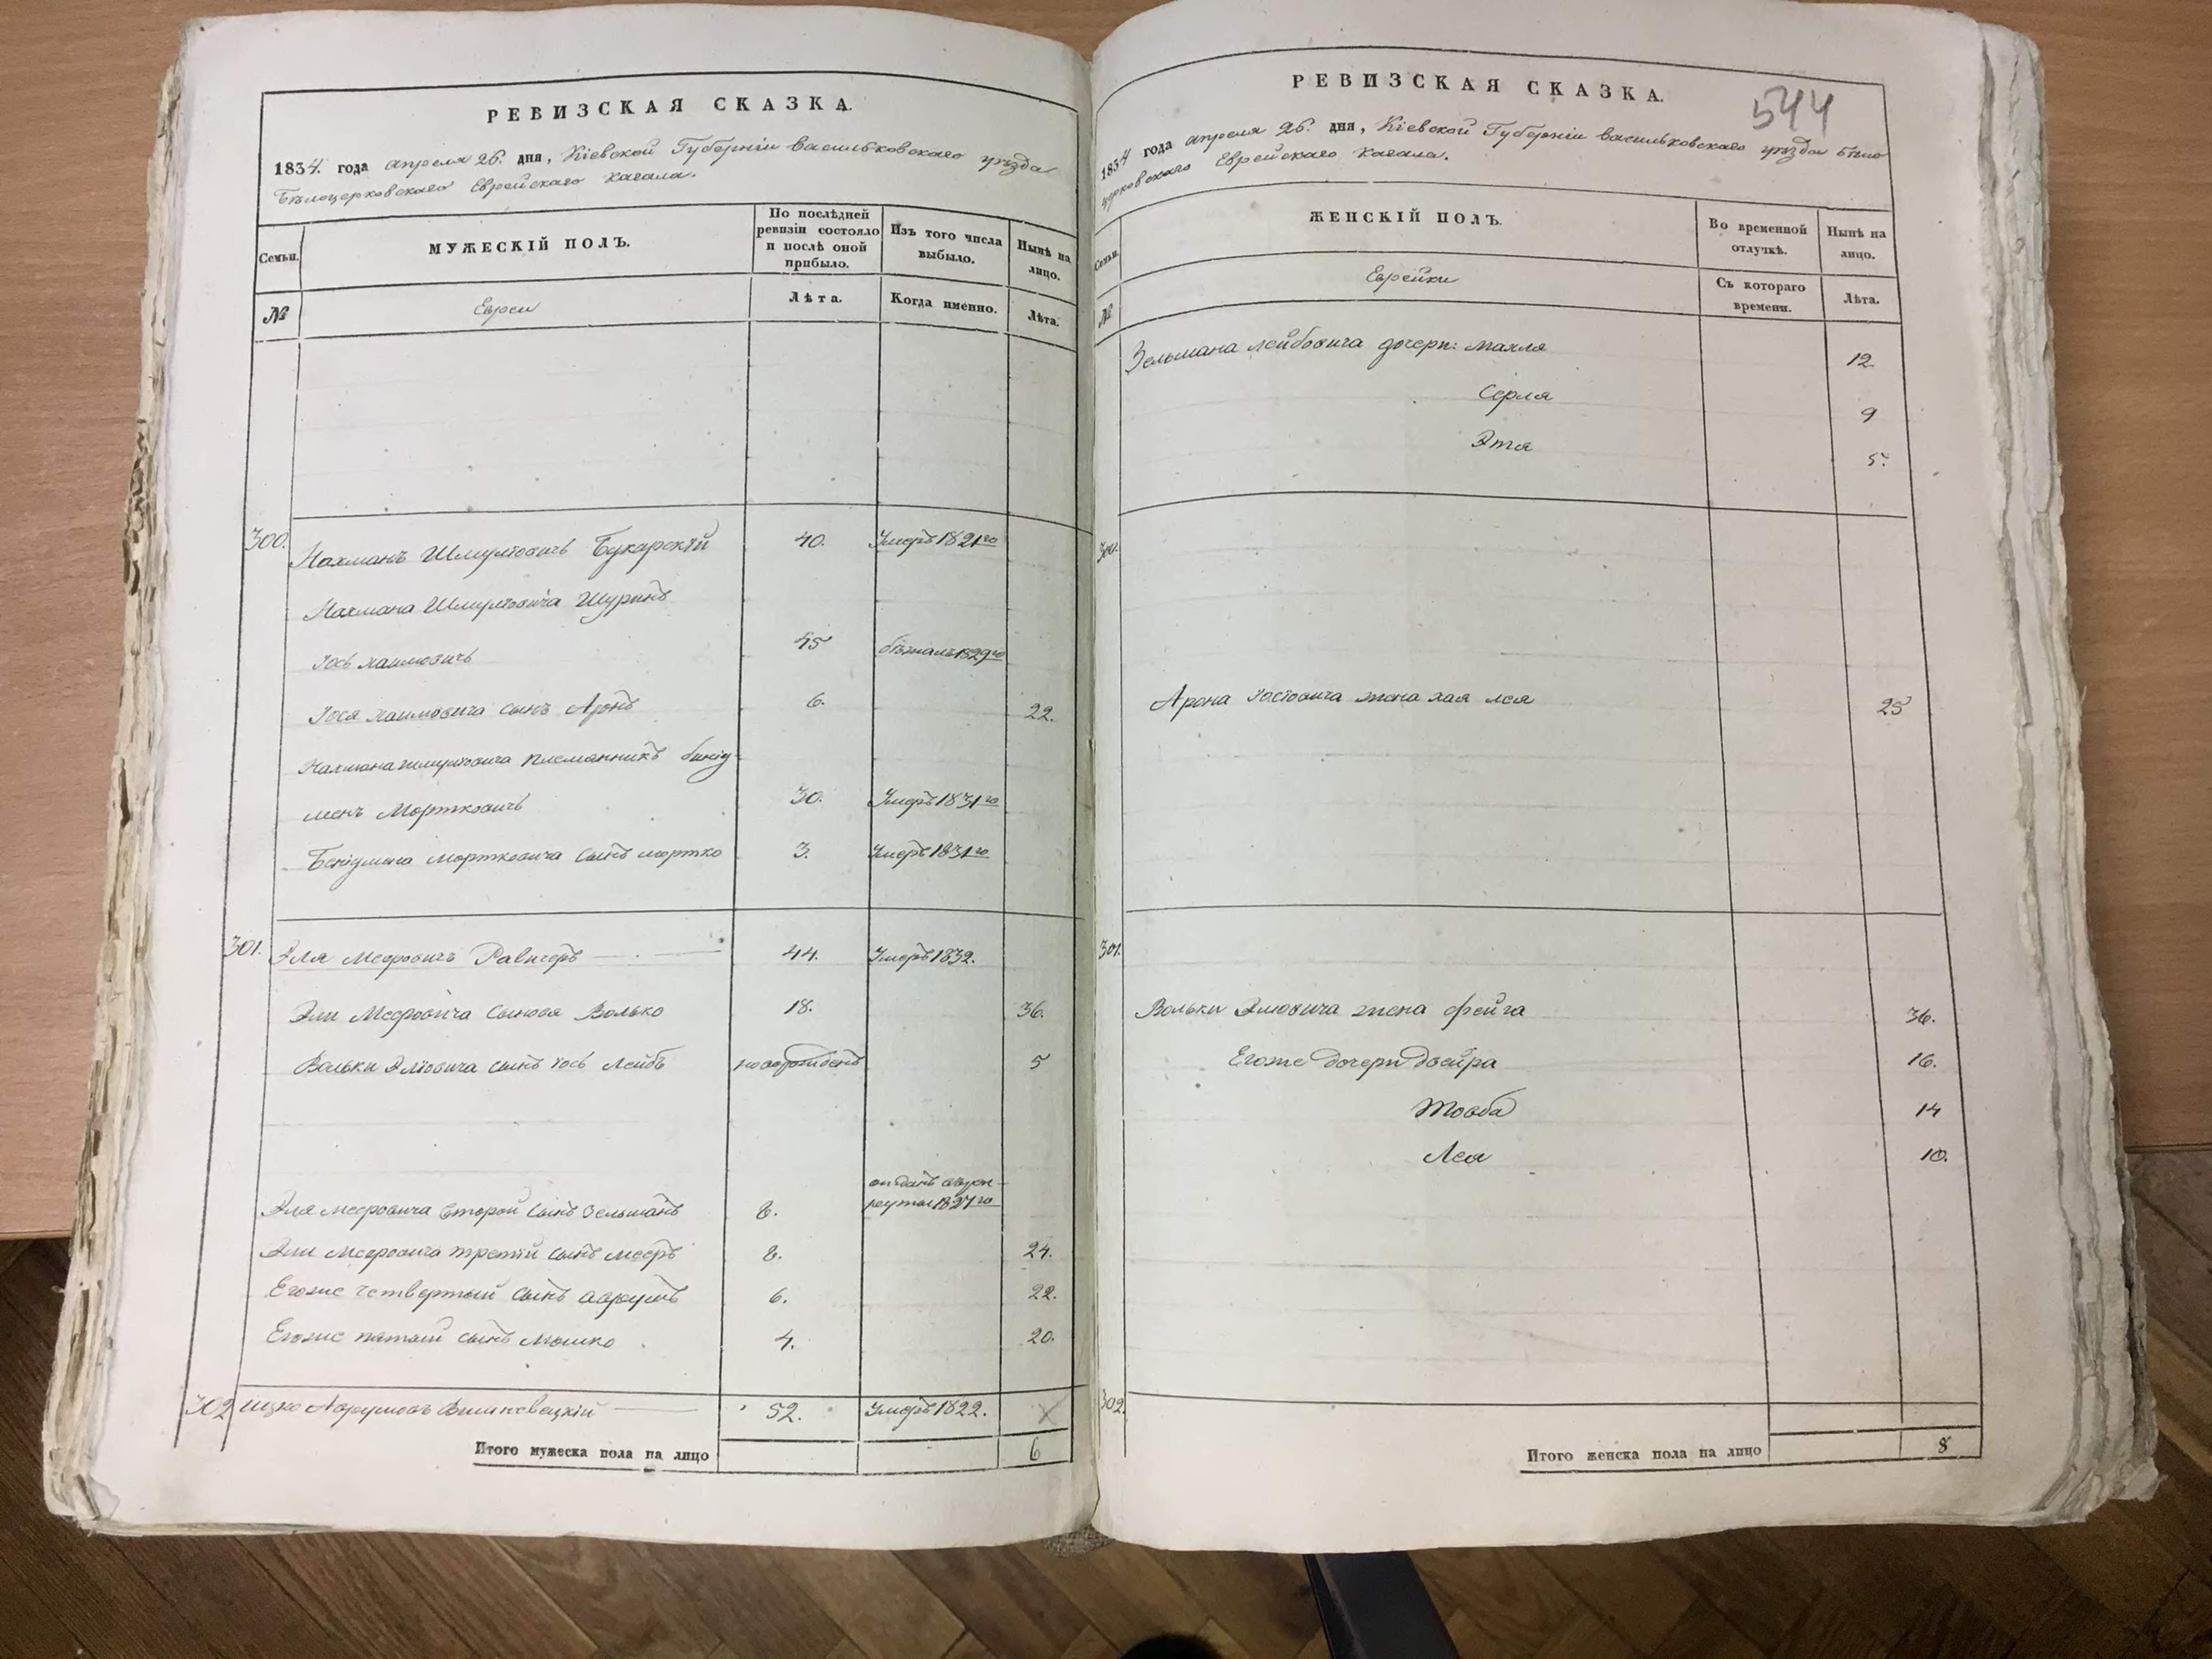 РЕВИЗСКАЯ СКАЗКА.
1834. года апреля 26. дня, Кіевской Губерніи васильковскаго уѣзда
Бѣлоцерковскаго Еврейскаго кагала.
Семьи.
МУЖЕСКІЙ ПОЛЪ.
По послѣдней ревизіи состояло и послѣ оной прибыло.
Изъ того числа выбыло.
Нынѣ на лицо.
№
Евреи
Лѣта.
Когда именно.
Лѣта.
300. Нахманъ Шмулiовичъ Букарскій 40. Умеръ 1821го
Нахмана Шмулiовича Шуринъ
Iось хаимовичъ 45 бѣжалъ 1829го
Iося хаимовича сынъ Аронъ 6. 22.
Нахмана шмулiовича племянникъ бинiу-
менъ Мортковичъ 30. Умеръ 1831го
Бенiумена мортковича сынъ мортко 3. Умеръ 1831го
301. Эля Мееровичъ Равичеръ 44. Умеръ 1832.
Эли Мееровича сыновя Волько 18. 36.
Вольки Элiовича сынъ iось Лейбъ новорожденъ 5
Эля мееровича второй сынъ Зельманъ 8. отданъ врек-
руты 1827го
Эли Мееровича третiй сынъ мееръ 8. 24.
Егоже четвертый сынъ аврумъ 6. 22.
Егоже пятый сынъ мошко 4. 20.
302 ицко Аврумовъ Вишневецкій 52. Умеръ 1822.
Итого мужеска пола на лицо 6
РЕВИЗСКАЯ СКАЗКА.
544
1834 года апреля 26. дня, Кіевской Губерніи васильковскаго уѣзда Бѣло
церковскаго Еврейскаго кагала.
Семьи.
ЖЕНСКІЙ ПОЛЪ.
Во временной отлучкѣ.
Нынѣ на лицо.
№
Еврейки
Съ котораго времени.
Лѣта.
Зельмана лейбовича дочери: малля 12
Серля 9
Этя 5.
300.
Арона Iосiовича жена хая лея 25
301.
Вольки Элiовича жена фейга 36.
Егоже дочери двейра 16.
Товба 14
Лея 10.
302.
Итого женска пола на лицо 8